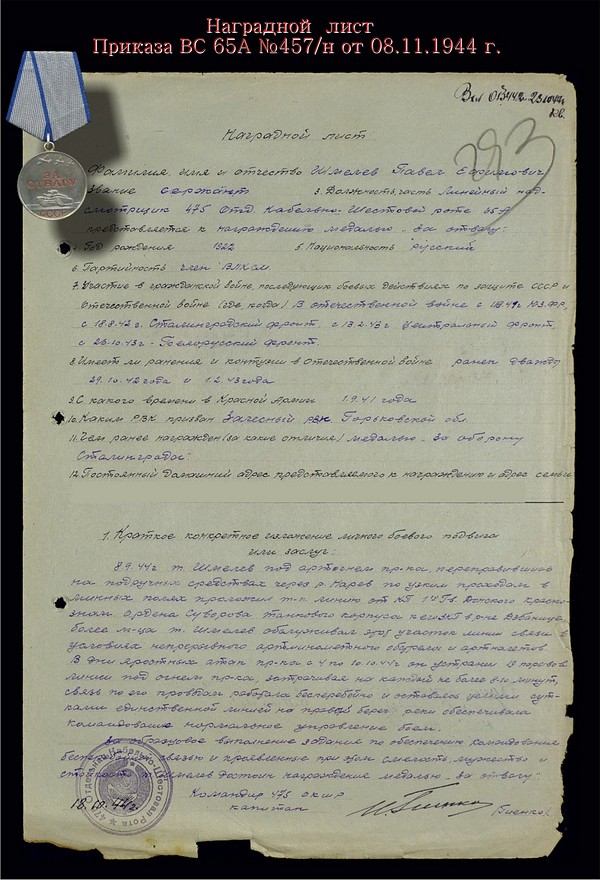 Наградной лист
Приказа ВС 65А №457/н от 08.11.1944 г.
Наградной лист
293
ЗА
ОТВАГУ
СССР
Фамилия, имя и отчество Шмелев Павел
Звание сержант 3. Должность, часть Линейный над-
смотрщик 475 Отд. Кабельно-Шестовой роте 65А
представляется к награждению медалью "За отвагу"
4. Год рождения 1922 5. Национальность русский
6. Партийность член ВЛКСМ
7. Участие в гражданской войне, последующих боевых действиях по защите СССР и
Отечественной войне (где, когда) В отечественной войне с
с 18.8.42г. Сталинградский фронт, с 13.2.43г Центральный фронт,
с 26.10.43г - Белорусский фронт.
8. Имеет ли ранения и контузии в Отечественной войне ранен дважды
29.10.42 года и 1.2.43 года
9. С какого времени в Красной Армии 1.9.41 года
10. Каким РВК призван РВК Горьковской обл.
11. Чем ранее награжден (за какие отличия) медалью "За оборону
Сталинграда"
12. Постоянный домашний адрес представляемого к награждению и адрес семьи
1. Краткое конкретное изложение личного боевого подвига
или заслуг:
8.9.44г т. Шмелев под артогнем пр-ка, переправившись
на подручных средствах через р. Нарев по узким проходам в
минных полях проложил т-ф линию от КП 1 Гв. Донского Красно-
знам. Ордена Суворова танкового корпуса к его
более м-ца т. Шмелев обслуживал этот участок линии связи в
условиях непрерывного артминометного обстрела и артналетов
В дни яростных атак пр-ка с 4 по 10.10.44г он устранил порывов
линии под огнем пр-ка, затрачивая на каждый не более 8-10 минут,
связь по его проводам работала бесперебойно и оставаясь целыми сут-
ками единственной линией на правый берег реки обеспечивала
командованию нормальное управление боем.
За образцовое выполнение задания по обеспечению командования
бесперебойной связью и проявленные при этом смелость, мужество и
стойкость т. Шмелев достоин награждения медалью "За отвагу".
Командир 475 ОКШР
капитан
18.10.44г.
Отдельная Кабельно-Шестовая Рота